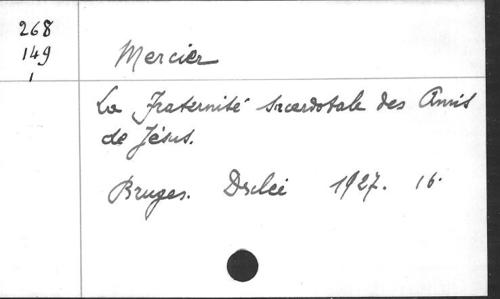 268
149
1
Mercier
La Fraternité sacerdotale des Amis
de Jésus.
Bruges. 1927. 16.